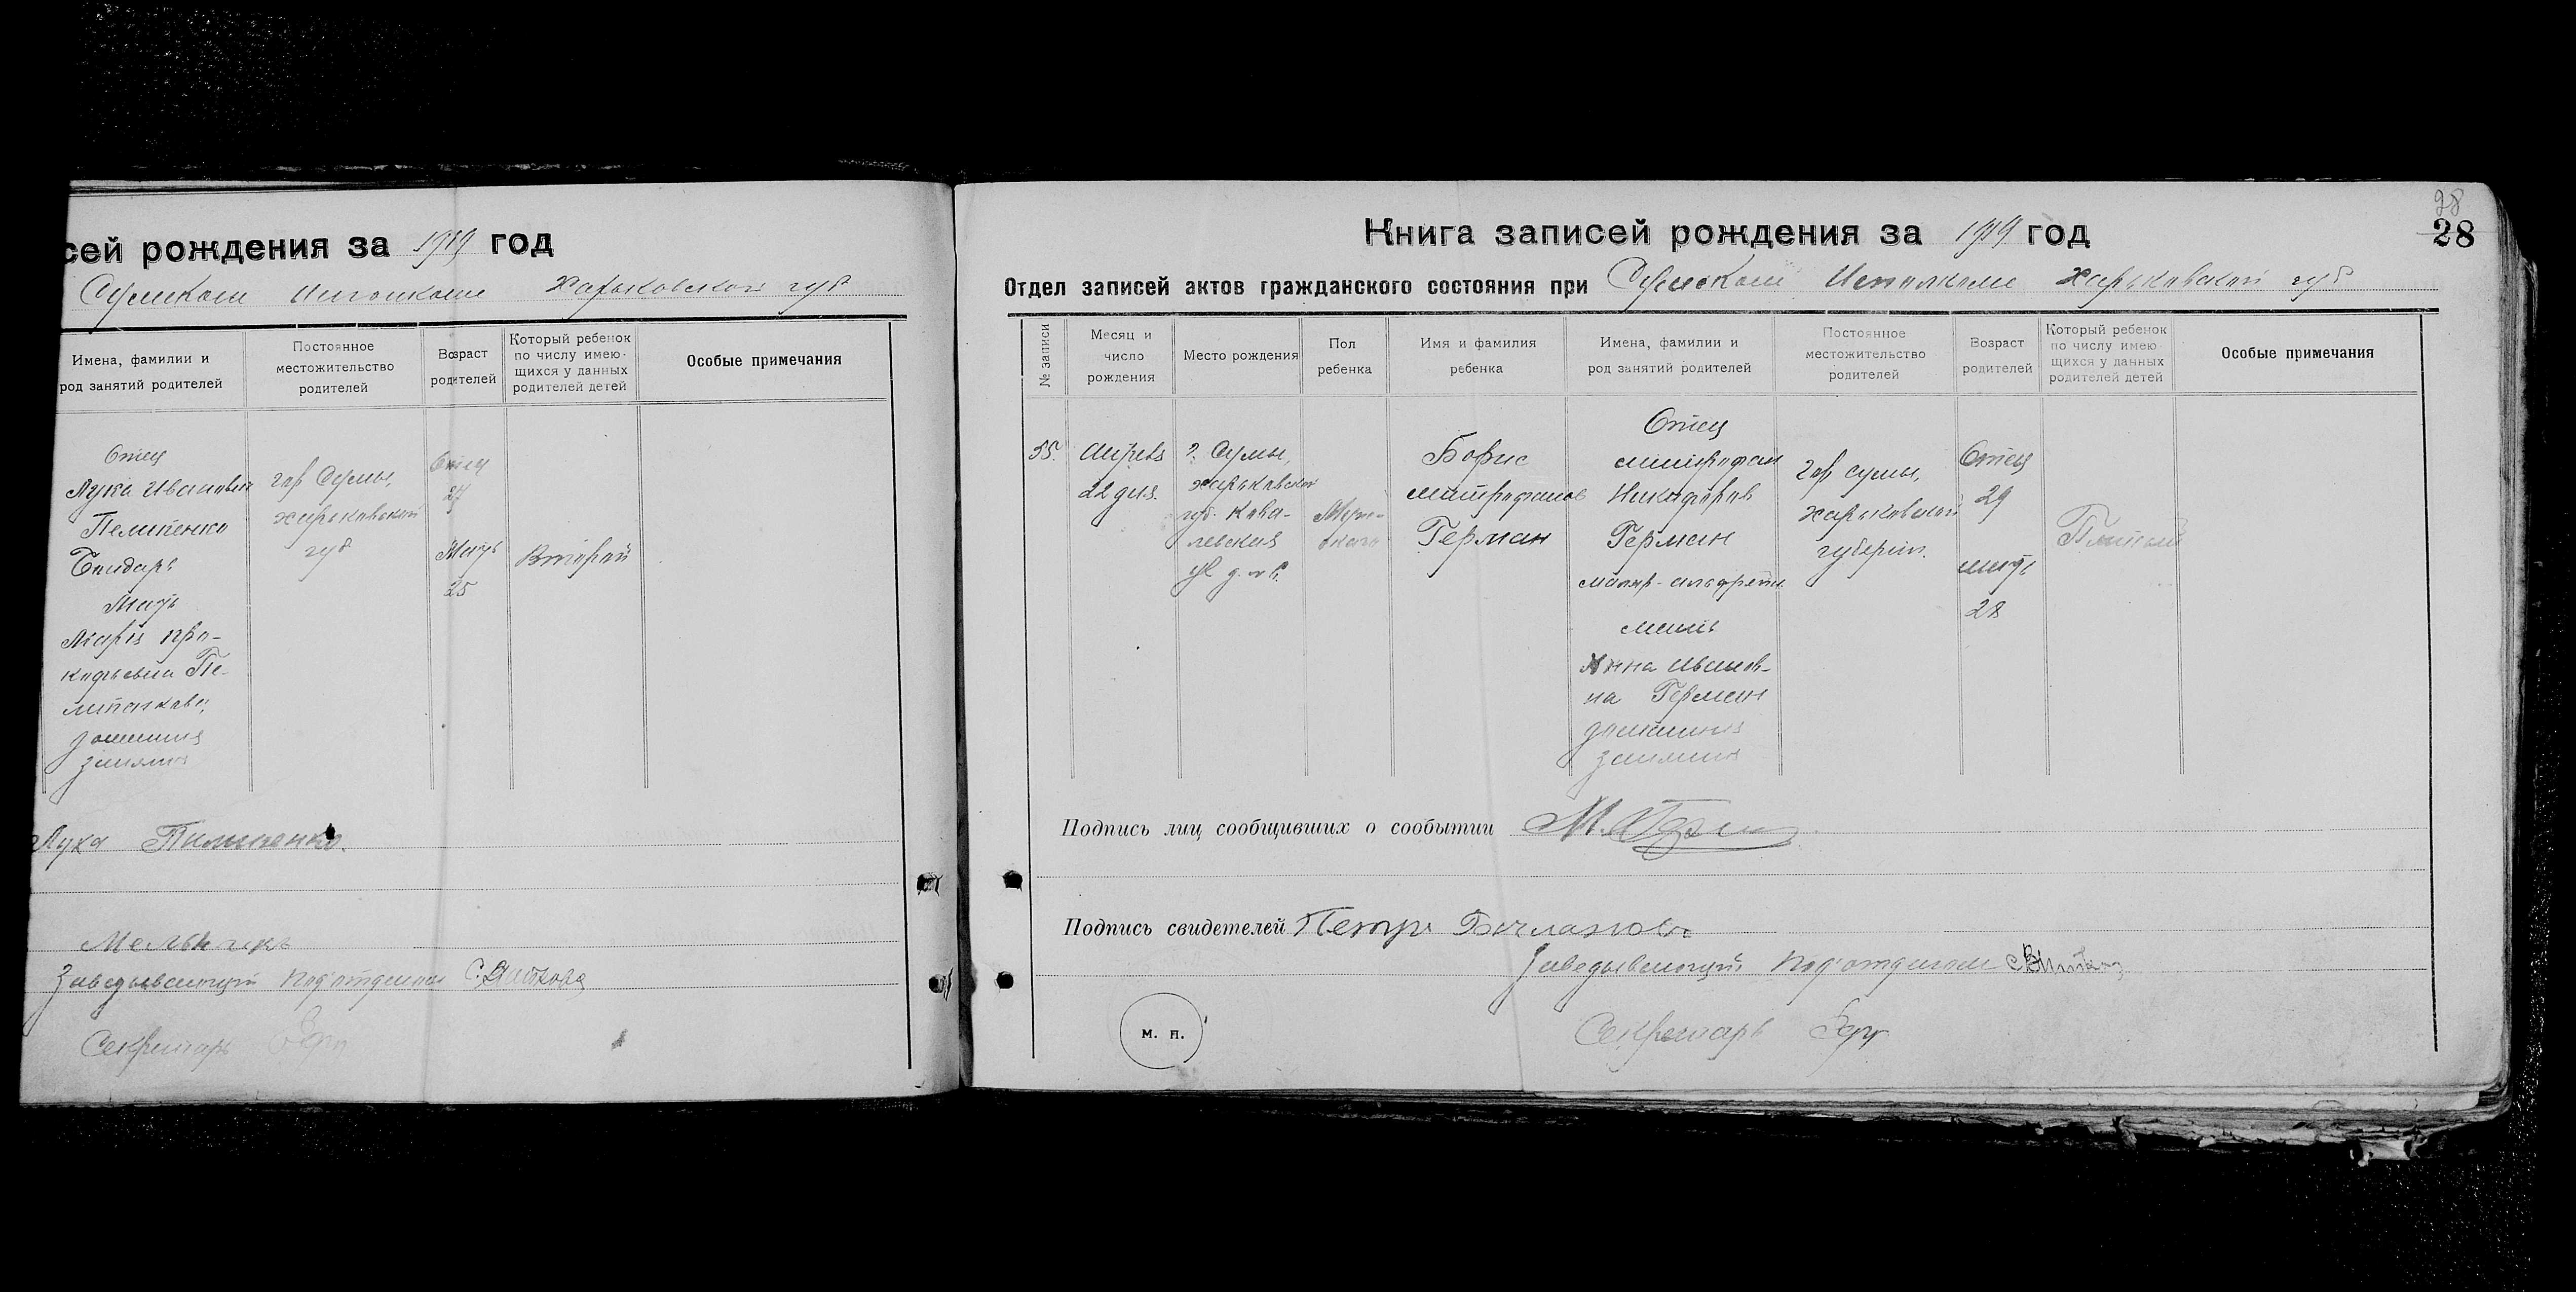 сей рождения за 1919 год
Сумском Исполкоме Харьковской губ
Имена, фамилии и
род занятий родителей
Постоянное
местожительство
родителей
Возраст
родителей
Который ребенок
по числу имею-
щихся у данных
родителей детей
Особые примечания
Отец
Лука Иванович
Пелипенко
Бондарь
Мать
Марія Про-
кофьевна Пе-
липенкова,
домашния
занятия
гор Сумы,
харьковской
губ
Отец
27
Мать
25
Второй
Лука
Мельникъ
Заведывающий Под'отделом
Секретарь
28
28
Книга записей рождения за 1919 год
Отдел записей актов гражданского состояния при Сумском Исполкоме Харьковской губ
№ записи
Месяц и
число
рождения
Место рождения
Пол
ребенка
Имя и фамилия
ребенка
Имена, фамилии и
род занятий родителей
Постоянное
местожительство
родителей
Возраст
родителей
Который ребенок
по числу имею-
щихся у данных
родителей детей
Особые примечания
55.
Апрель
22 дня.
г. Сумы,
харьковской
губ. Кова-
левская
ул
Муж-
ского
Борис
митрофанов
Герман
Отец
митрофан
Никифоров
Герман
маляр-альфрейн
мать
Анна Иванов-
на Герман
домашния
занятия
гор Сумы,
харьковской
губерни.
Отец
29
мать
28
Пятый
Подпись лиц сообщивших о сообытии
Подпись свидетелей Петр
Заведывающий Под'отделом
м. п.
Секретарь